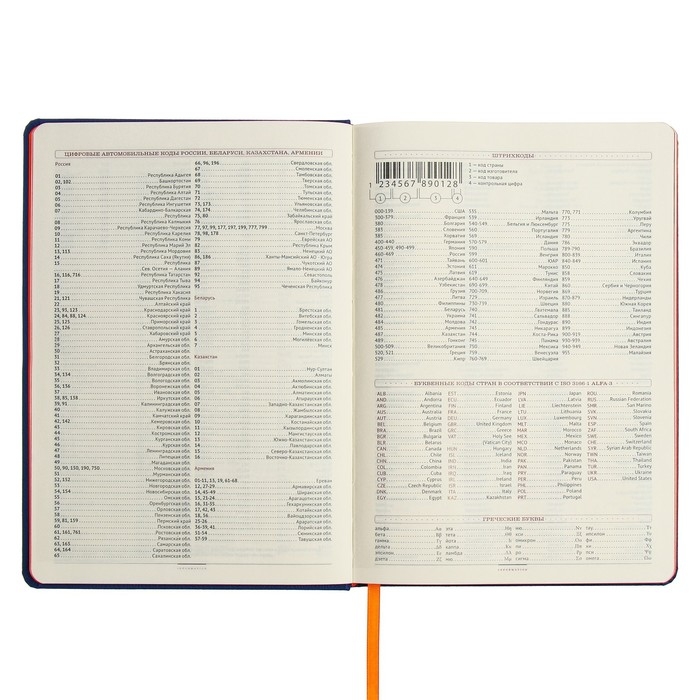 ЦИФРОВЫЕ АВТОМОБИЛЬНЫЕ КОДЫ РОССИИ, БЕЛАРУСИ, КАЗАХСТАНА, АРМЕНИИ
Россия
01 Республика Адыгея
02, 102 Башкортостан
03 Республика Бурятия
04 Республика Алтай
05 Республика Дагестан
06 Республика Ингушетия
07 Кабардино-Балкарская
Республика
08 Республика Калмыкия
09 Республика Карачаево-Черкесия
10 Республика Карелия
11 Республика Коми
12 Республика Марий Эл
13, 113 Республика Мордовия
14 Республика Саха (Якутия)
15 Республика
Сев. Осетия — Алания
16, 116, 716 Республика Татарстан
17 Республика Тыва
18 Удмуртская Республика
19 Республика Хакасия
21, 121 Чувашская Республика
22 Алтайский край
23, 93, 123 Краснодарский край
24, 84, 88, 124 Красноярский край
25, 125 Приморский край
26, 126 Ставропольский край
27 Хабаровский край
28 Амурская обл.
29 Архангельская обл.
30 Астраханская обл.
31 Белгородская обл.
32 Брянская обл.
33 Владимирская обл.
34, 134 Волгоградская обл.
35 Вологодская обл.
36, 136 Воронежская обл.
37 Ивановская обл.
38, 85, 138 Иркутская обл.
39, 91 Калининградская обл.
40 Калужская обл.
41 Камчатский край
42, 142 Кемеровская обл.
43 Кировская обл.
44 Костромская обл.
45 Курганская обл.
46 Курская обл.
47 Ленинградская обл.
48 Липецкая обл.
49 Магаданская обл.
50, 90, 150, 190, 750 Московская обл.
51 Мурманская обл.
52, 152 Нижегородская обл.
53 Новгородская обл.
54, 154 Новосибирская обл.
55 Омская обл.
56 Оренбургская обл.
57 Орловская обл.
58 Пензенская обл.
59, 81, 159 Пермский край
60 Псковская обл.
61, 161, 761 Ростовская обл.
62 Рязанская обл.
63, 163 Самарская обл.
64, 164 Саратовская обл.
65 Сахалинская обл.
66, 96, 196 Свердловская обл.
67 Смоленская обл.
68 Тамбовская обл.
69 Тверская обл.
70 Томская обл.
71 Тульская обл.
72 Тюменская обл.
73, 173 Ульяновская обл.
74, 174 Челябинская обл.
75, 80 Забайкальский край
76 Ярославская обл.
77, 97, 99, 177, 197, 199, 777, 799 Москва
78, 98, 178 Санкт-Петербург
79 Еврейская АО
82 Республика Крым
83 Ненецкий АО
86, 186 Ханты-Мансийский АО - Югра
87 Чукотский АО
89 Ямало-Ненецкий АО
92 Севастополь
94 Байконур
95 Чеченская Республика
Беларусь
1 Брестская обл.
2 Витебская обл.
3 Гомельская обл.
4 Гродненская обл.
5 Минская обл.
6 Могилевская обл.
7 Минск
Казахстан
01 Нур-Султан
02 Алматы
03 Акмолинская обл.
04 Актюбинская обл.
05 Алматинская обл.
06 Атырауская обл.
07 Западно-Казахстанская обл.
08 Жамбылская обл.
09 Карагандинская обл.
10 Костанайская обл.
11 Кызылординская обл.
12 Мангистауская обл.
13 Южно-Казахстанская обл.
14 Павлодарская обл.
15 Северо-Казахстанская обл.
16 Восточно-Казахстанская обл.
Армения
01-11, 13, 19, 61-68 Ереван
12, 27-29 Армавирская обл.
14, 45-49 Ширакская обл.
15, 23-26 Арагацотнская обл.
16, 31-35 Гехаркуникская обл.
17, 42, 43 Котайкская обл.
18, 56 Вайоцдзорская обл.
25-26 Араратская обл.
36-39, 41 Лорийская обл.
51-54 Сюникская обл.
57-59 Тавушская обл.
ШТРИХКОДЫ
1 234567 890128
1 2 3 4
1 — код страны
2 — код изготовителя
3 — код товара
4 — контрольная цифра
000-139 США
300-379 Франция
380 Болгария
383 Словения
385 Хорватия
400-440 Германия
450-459, 490-499 Япония
460-469 Россия
471 Тайвань
474 Эстония
475 Латвия
476 Азербайджан
478 Узбекистан
479 Шри-Ланка
477 Литва
480 Филиппины
481 Беларусь
482 Украина
484 Молдова
485 Армения
486 Грузия
487 Казахстан
489 Гонконг
500-509 Великобритания
520, 521 Греция
529 Кипр
535 Мальта
539 Ирландия
540-549 Бельгия и Люксембург
560 Португалия
569 Исландия
570-579 Дания
590 Польша
594 Румыния
599 Венгрия
600, 601 ЮАР
611 Марокко
619 Тунис
640-649 Финляндия
690-693, 695 Китай
700-709 Норвегия
729 Израиль
730-739 Швеция
740 Гватемала
741 Сальвадор
742 Гондурас
743 Никарагуа
744 Коста-Рика
745 Панама
750 Мексика
759 Венесуэла
760-769 Швейцария
770, 771 Колумбия
773 Уругвай
775 Перу
779 Аргентина
780 Чили
786 Эквадор
789, 790 Бразилия
800-839 Италия
840-849 Испания
850 Куба
858 Словакия
860 Сербия и Черногория
869 Турция
870-879 Нидерланды
880 Южная Корея
885 Таиланд
888 Сингапур
890 Индия
893 Вьетнам
899 Индонезия
900-919 Австрия
930-939 Австралия
940-949 Новая Зеландия
955 Малайзия
БУКВЕННЫЕ КОДЫ СТРАН В СООТВЕТСТВИИ С ISO 3166-1 ALFA-3
ALB Albania
AND Andorra
ARG Argentina
AUS Australia
AUT Austria
BEL Belgium
BRA Brazil
BGR Bulgaria
BLR Belarus
CAN Canada
CHL Chile
CHN China
COL Colombia
CUB Cuba
CYP Cyprus
CZE Czech Republic
DNK Denmark
EGY Egypt
EST Estonia
ECU Ecuador
FIN Finland
FRA France
DEU Germany
GBR United Kingdom
GRC Greece
VAT Holy See
(Vatican City)
HUN Hungary
ISL Iceland
IND India
IRN Iran
IRQ Iraq
IRL Ireland
ISR Israel
ITA Italy
KAZ Kazakhstan
JPN Japan
LVA Latvia
LIE Liechtenstein
LTU Lithuania
LUX Luxembourg
MLT Malta
MAR Morocco
MEX Mexico
MCO Monaco
NLD Netherlands
NOR Norway
PAK Pakistan
PAN Panama
PRY Paraguay
PER Peru
PHL Philippines
POL Poland
PRT Portugal
ROU Romania
RUS Russian Federation
SMR San Marino
SVK Slovakia
SVN Slovenia
ESP Spain
ZAF South Africa
SWE Sweden
CHE Switzerland
SYR Syrian Arab Republic
TWN Taiwan
THA Thailand
TUR Turkey
UKR Ukraine
USA United States
ГРЕЧЕСКИЕ БУКВЫ